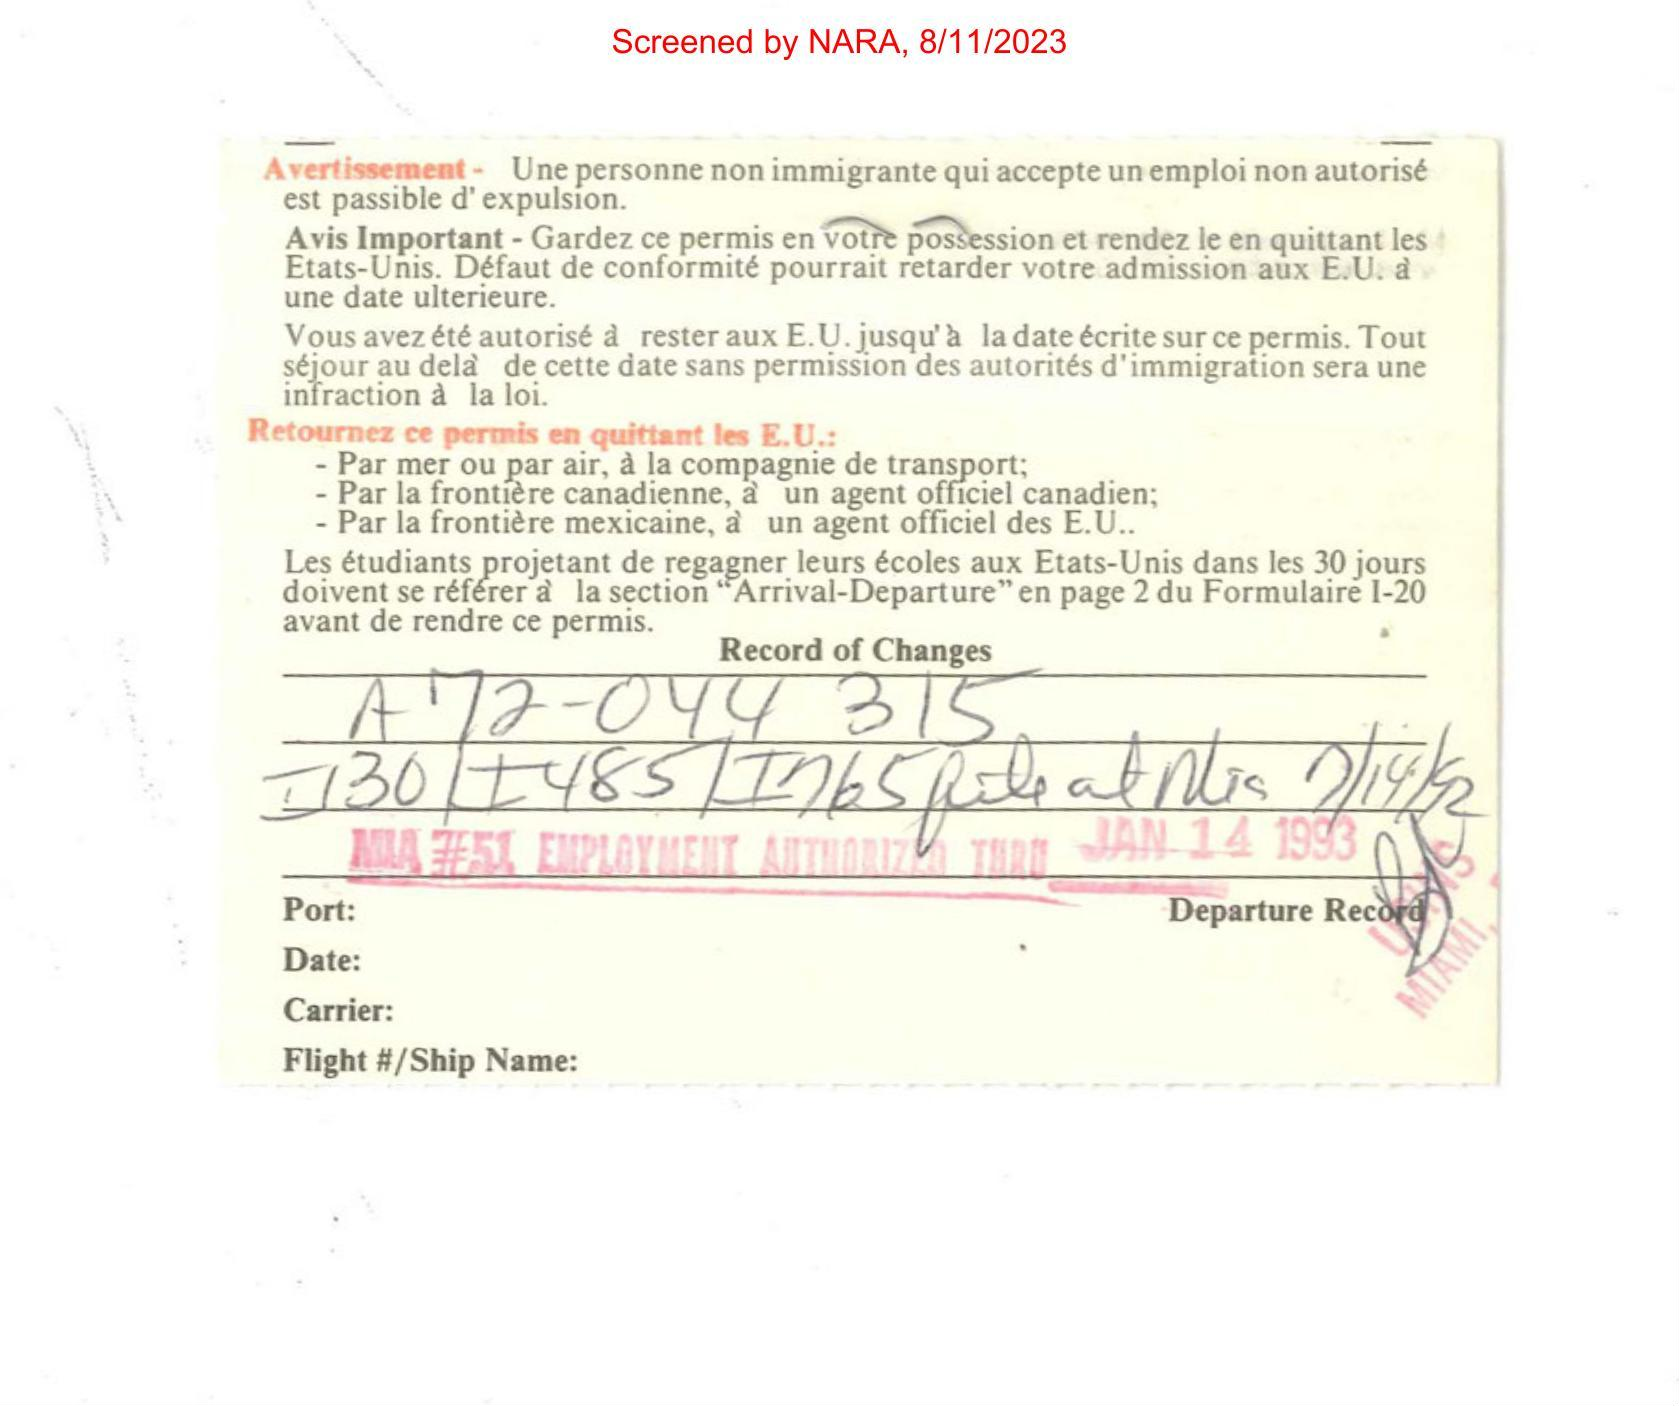 Screened by NARA, 8/11/2023
Avertissement - Une personne non immigrante qui accepte un emploi non autorisé
est passible d' expulsion.
Avis Important - Gardez ce permis en votre possession et rendez le en quittant les
Etats-Unis. Défaut de conformité pourrait retarder votre admission aux E.U. à
une date ulterieure.
Vous avez été autorisé à rester aux E.U. jusqu'à la date écrite sur ce permis. Tout
séjour au delà de cette date sans permission des autorités d'immigration sera une
infraction à la loi.
Retournez ce permis en quittant les E.U.:
- Par mer ou par air, à la compagnie de transport;
- Par la frontière canadienne, à un agent officiel canadien;
- Par la frontière mexicaine, à un agent officiel des E.U..
Les étudiants projetant de regagner leurs écoles aux Etats-Unis dans les 30 jours
doivent se référer à la section "Arrival-Departure" en page 2 du Formulaire I-20
avant de rendre ce permis.
Record of Changes
A 72-044 315
I-130/I-485/I765 file at Mia 7/14/92
MIA #51 EMPLOYMENT AUTHORIZED THRU JAN 14 1993
Port:
Departure Record
Date:
MIAMI,
Carrier:
Flight #/Ship Name: